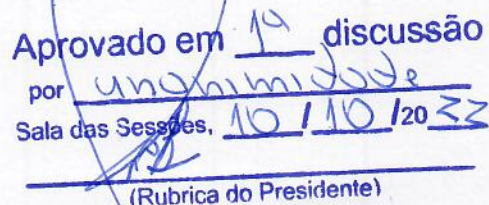 Aprovado em 1ª discussão
por unanimidade
Sala das Sessões, 10 / 10 /20 22
(Rubrica do Presidente)